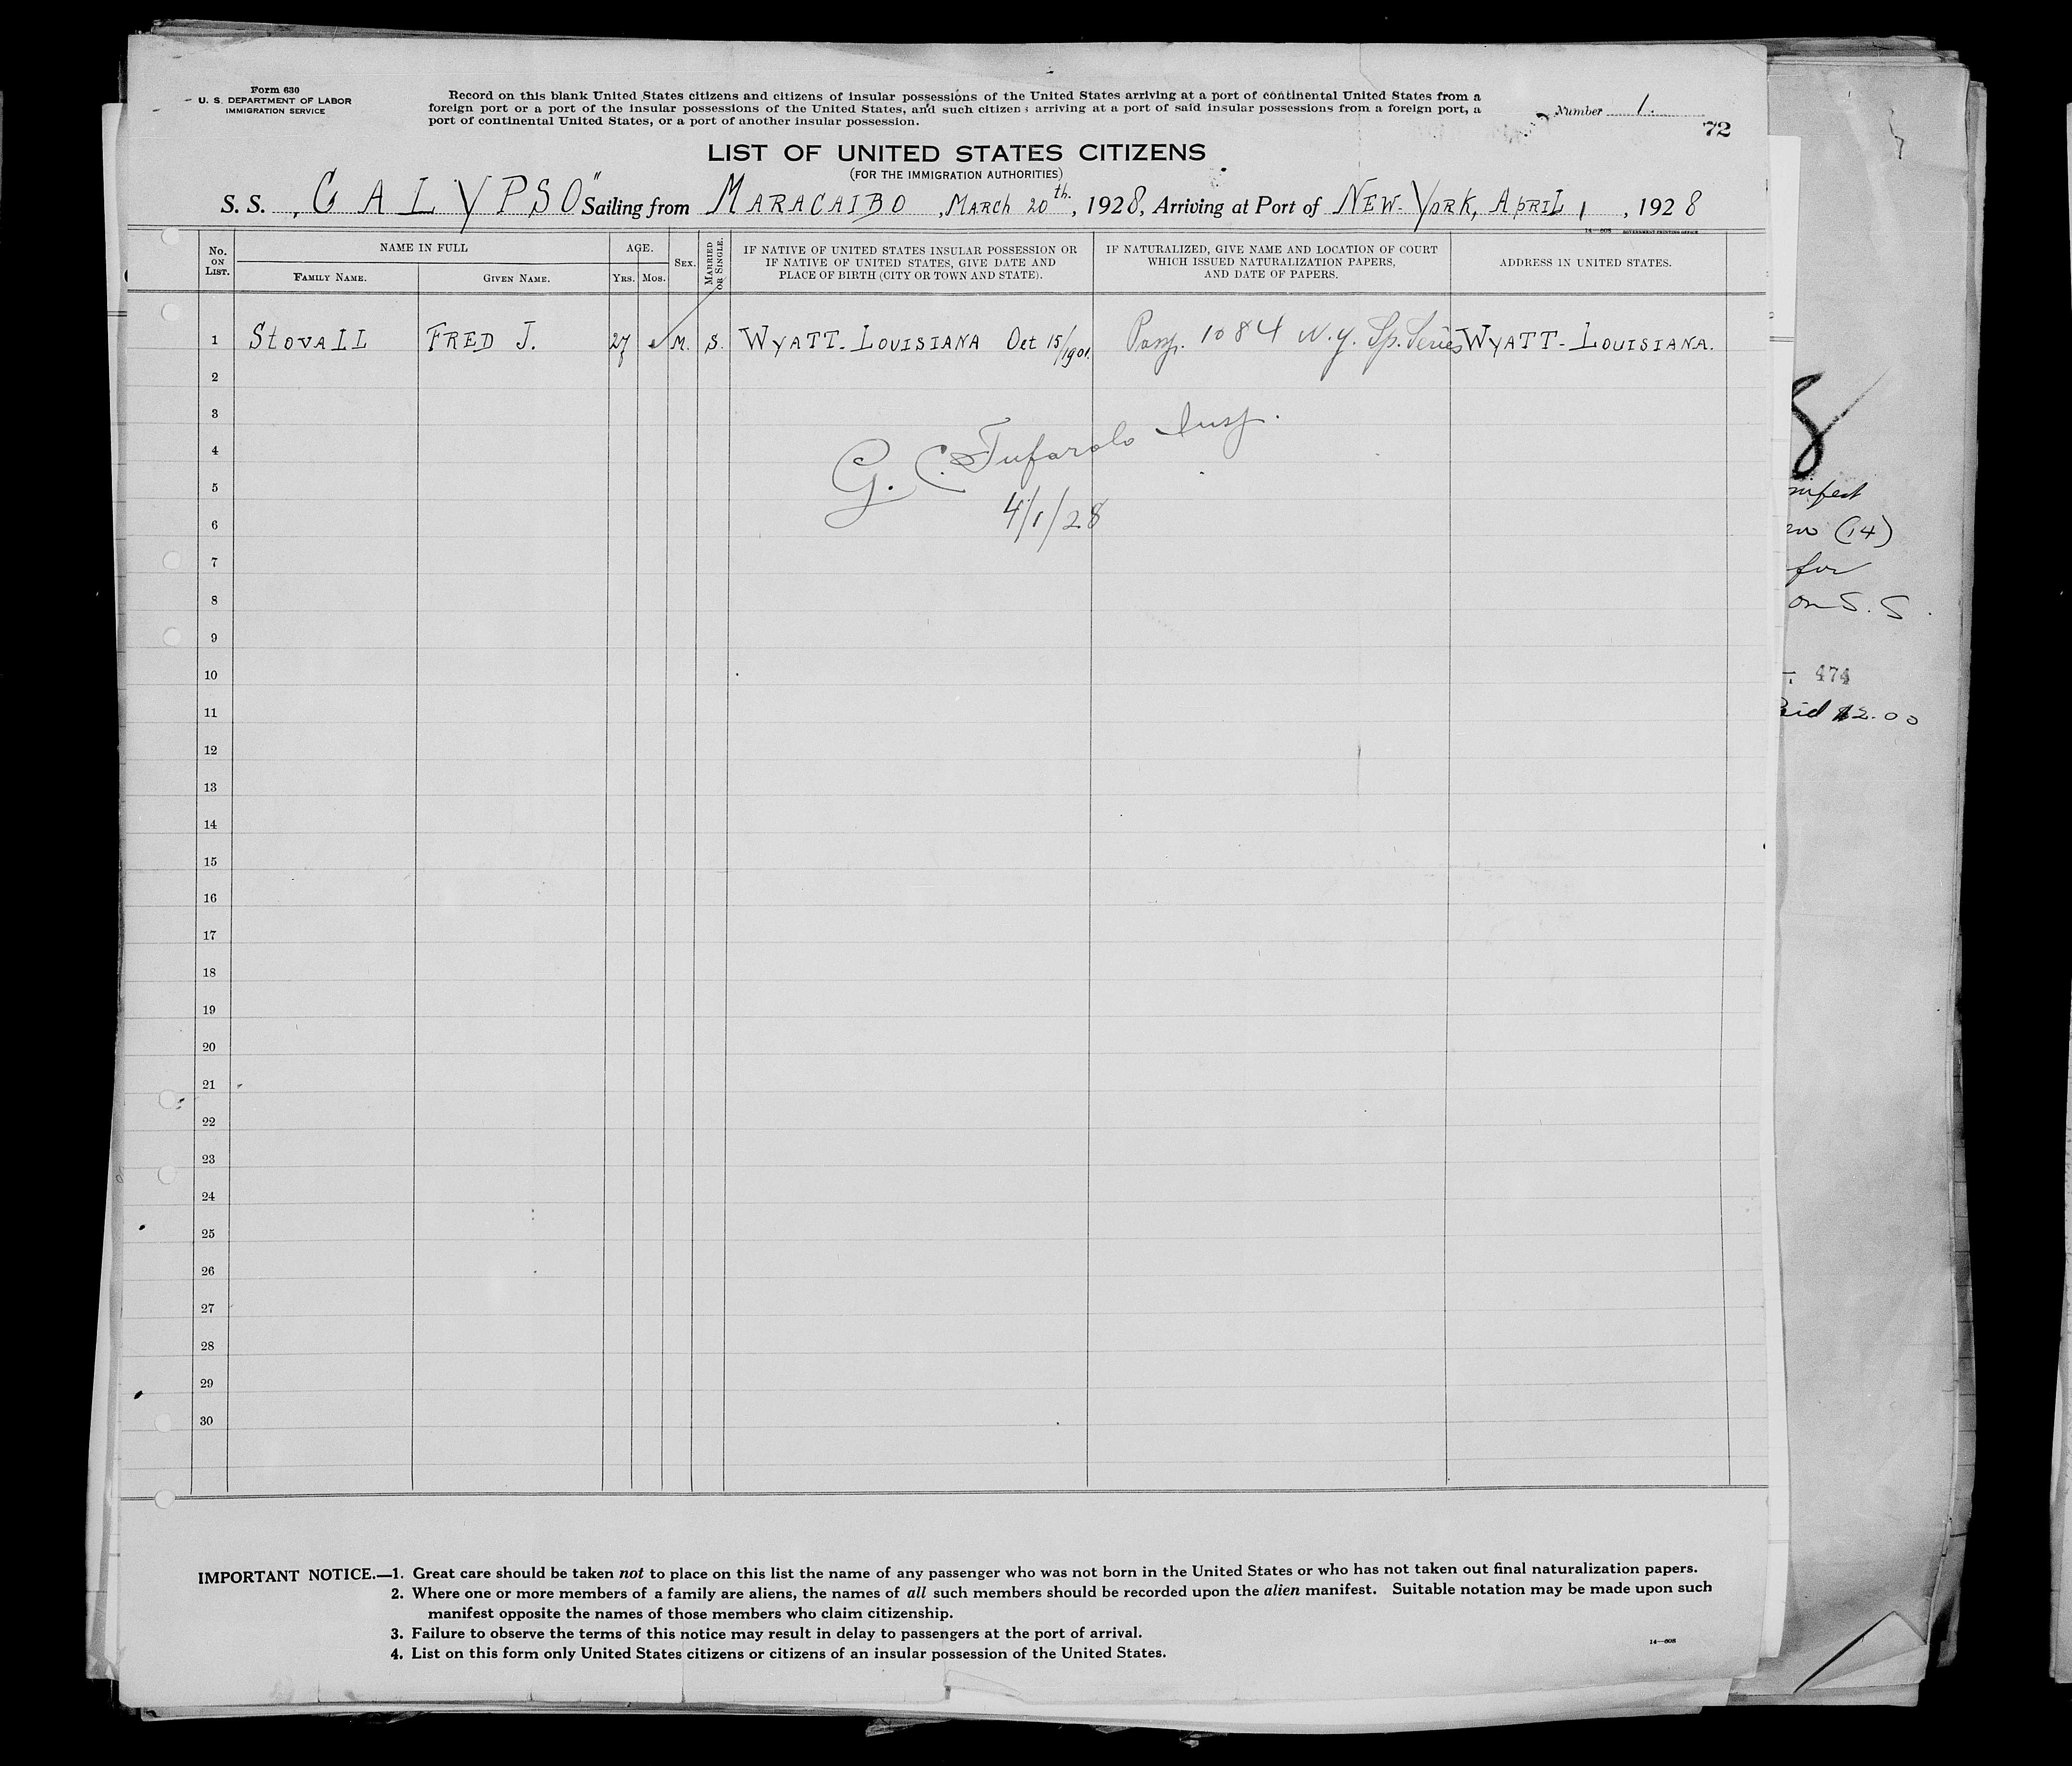 Form 630
U. S. DEPARTMENT OF LABOR
IMMIGRATION SERVICE
Record on this blank United States citizens and citizens of insular possessions of the United States arriving at a port of continental United States from a
foreign port or a port of the insular possessions of the United States, and such citizens arriving at a port of said insular possessions from a foreign port, a
port of continental United States, or a port of another insular possession.
Number 1.
72
LIST OF UNITED STATES CITIZENS
(FOR THE IMMIGRATION AUTHORITIES)
S. S. „CALYPSO" Sailing from MARACAIBO, MARCH 20th, 1928, Arriving at Port of NEW-YORK, APRIL 1, 1928
14—608 GOVERNMENT PRINTING OFFICE
No. ON LIST.
NAME IN FULL
FAMILY NAME.
GIVEN NAME.
AGE.
YRS.
MOS.
SEX.
MARRIED OR SINGLE.
IF NATIVE OF UNITED STATES INSULAR POSSESSION OR
IF NATIVE OF UNITED STATES, GIVE DATE AND
PLACE OF BIRTH (CITY OR TOWN AND STATE).
IF NATURALIZED, GIVE NAME AND LOCATION OF COURT
WHICH ISSUED NATURALIZATION PAPERS,
AND DATE OF PAPERS.
ADDRESS IN UNITED STATES.
1 STOVALL FRED J. 27 M. S. WYATT-LOUISIANA Oct 15/1901. Passp. 1084 N.Y. Sp. Series WYATT-LOUISIANA.
2
3
G. C. Tufarolo Insp.
4
5
4/1/28
6
7
8
9
10
11
12
13
14
15
16
17
18
19
20
21
22
23
24
25
26
27
28
29
30
IMPORTANT NOTICE.—1. Great care should be taken not to place on this list the name of any passenger who was not born in the United States or who has not taken out final naturalization papers.
2. Where one or more members of a family are aliens, the names of all such members should be recorded upon the alien manifest. Suitable notation may be made upon such
manifest opposite the names of those members who claim citizenship.
3. Failure to observe the terms of this notice may result in delay to passengers at the port of arrival.
4. List on this form only United States citizens or citizens of an insular possession of the United States.
14—608
(14)
for
on S. S.
474
$2.00